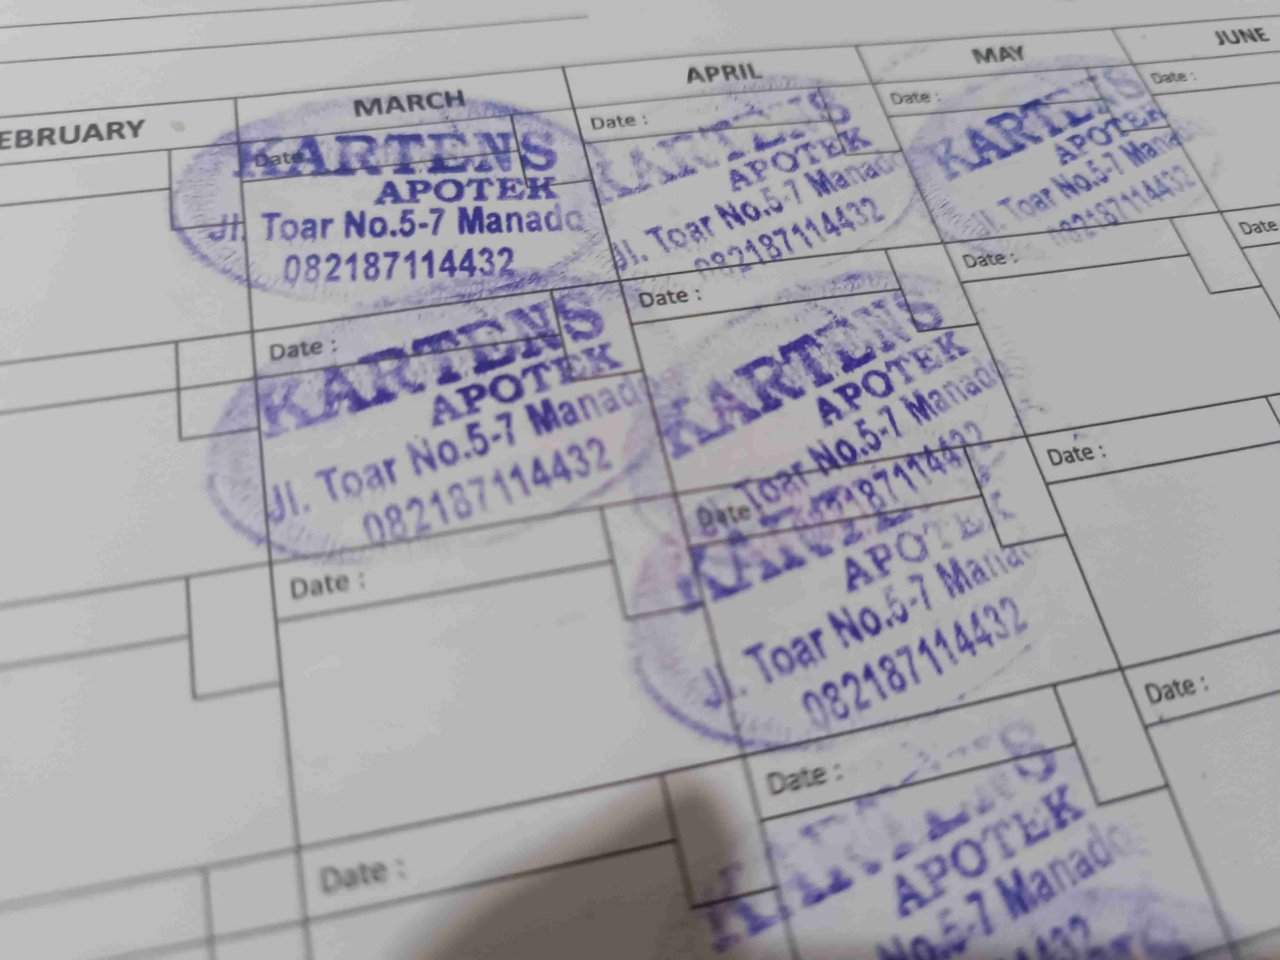 EBRUARY
MARCH
APRIL
MAY
JUNE
Date :
KARTENS
APOTEK
Jl. Toar No.5-7 Manado
082187114432
Date :
KARTENS
APOTEK
Jl. Toar No.5-7 Manado
082187114432
Date :
KARTENS
APOTEK
Jl. Toar No.5-7 Manado
082187114432
Date :
Date :
KARTENS
APOTEK
Jl. Toar No.5-7 Manado
082187114432
Date :
KARTENS
APOTEK
Toar No.5-7 Manado
Date :
Date
Date :
Date
APOTEK
Jl. Toar No.5-7 Manado
082187114432
Date :
Date :
Date :
KARTENS
APOTEK
No.5-7 Manado
4432
Date :